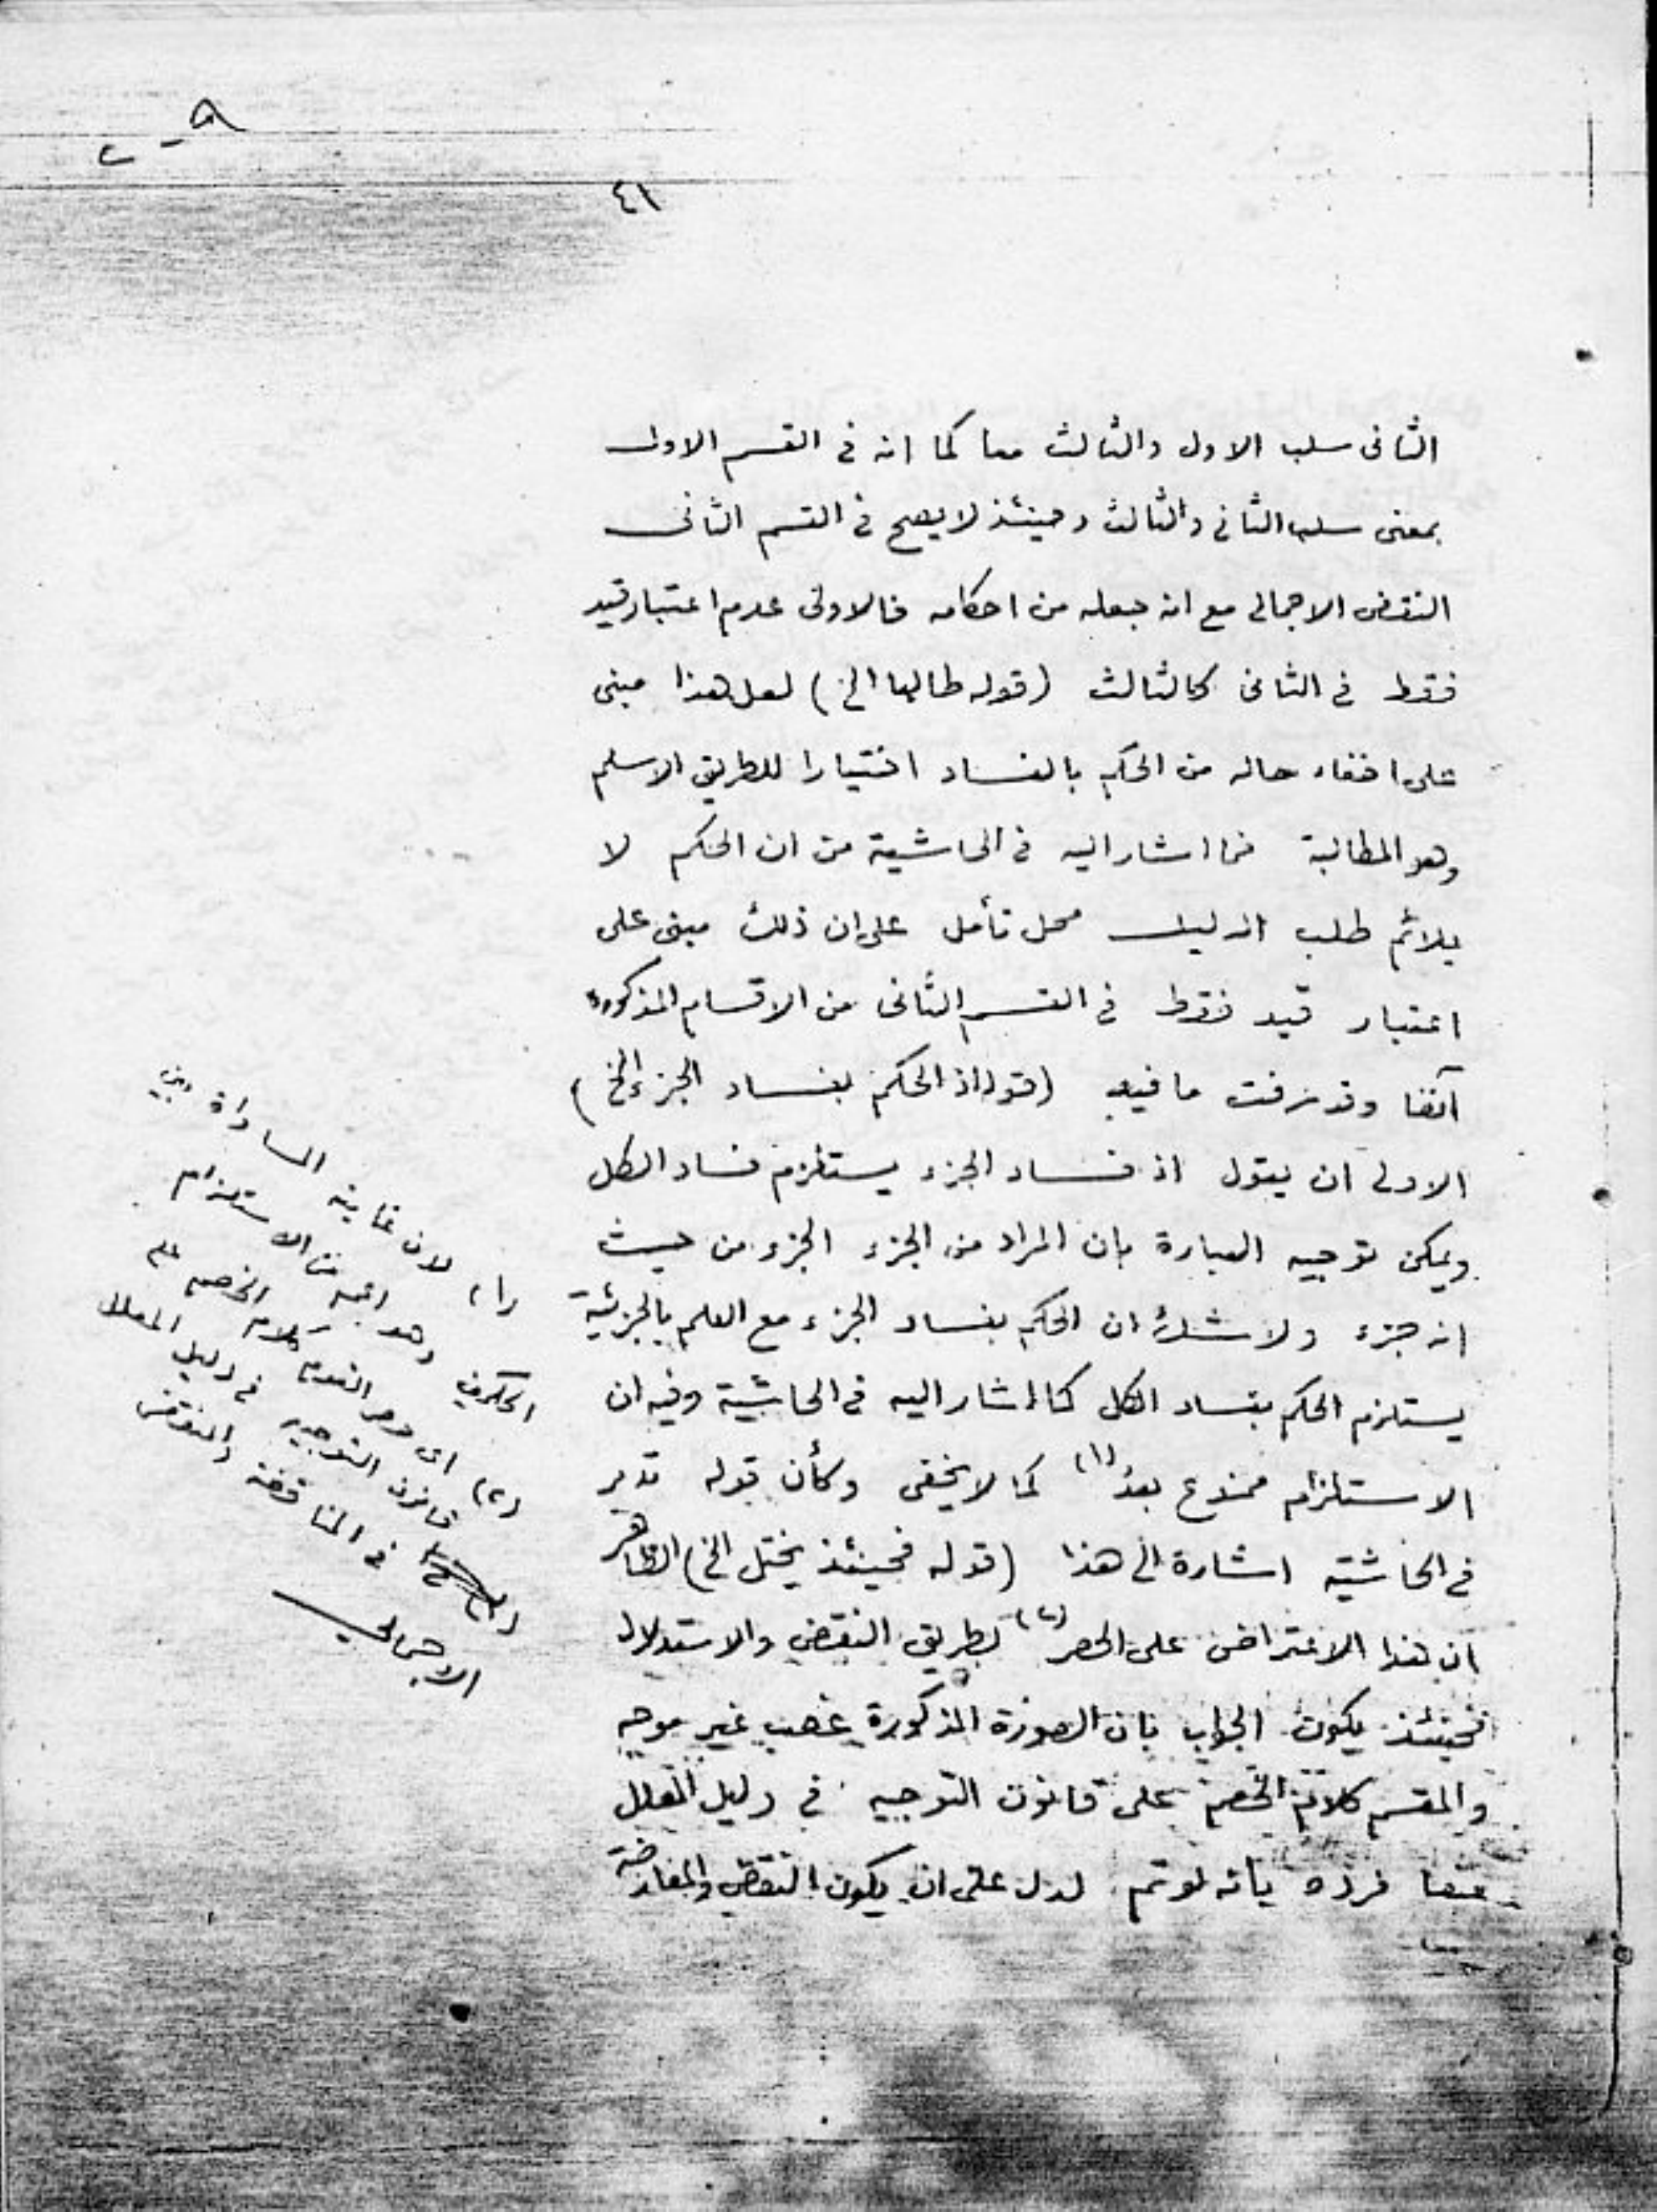 ٤١
الثانى سلب الاول والثالث معا كما انه فى القسم الاول
بمعنى سلب الثانى والثالث وحينئذ لا يصح فى القسم الثانى
النقض الاجمالى مع انه جعله من احكامه فالاولى عدم اعتبار قيد
فقط فى الثانى كالثالث (قوله طالبا الخ) لعل هذا مبنى
على اخفاء حاله من الحكم بالفساد اختيارا للطريق الاسلم
وهو المطالبة فما اشار اليه فى الحاشية من ان الحكم لا
يلائم طلب الدليل محل تأمل على ان ذلك مبنى على
اعتبار قيد فقط فى القسم الثانى من الاقسام المذكورة
آنفا وقد عرفت ما فيه (قوله اذ الحكم بفساد الجزء الخ)
الاولى ان يقول اذ فساد الجزء يستلزم فساد الكل
ويمكن توجيه العبارة بان المراد من الجزء الجزء من حيث
انه جزء ولا شك ان الحكم بفساد الجزء مع العلم بالجزئية
يستلزم الحكم بفساد الكل كما اشار اليه فى الحاشية وفيه ان
الاستلزام ممنوع بعد (١) كما لا يخفى وكأن قوله تدبر
فى الحاشية اشارة الى هذا (قوله فحينئذ يختل الخ) الظاهر
ان هذا الاعتراض على الحصر (٢) بطريق النقض والاستدلال
فحينئذ يكون الجواب بان الصورة المذكورة غصب غير موجه
والمقسم كلام الخصم على قانون التوجيه فى دليل المعلل
منعا فرده بانه لو تم لدل على ان يكون النقض والمعارضة
(١) لان غاية المساواة بين
الحكمين وهو اعم من الاستلزام
(٢) اى حصر القوم كلام الخصم على
قانون التوجيه فى دليل المعلل
فى المناقضة والنقض
الاجمالى